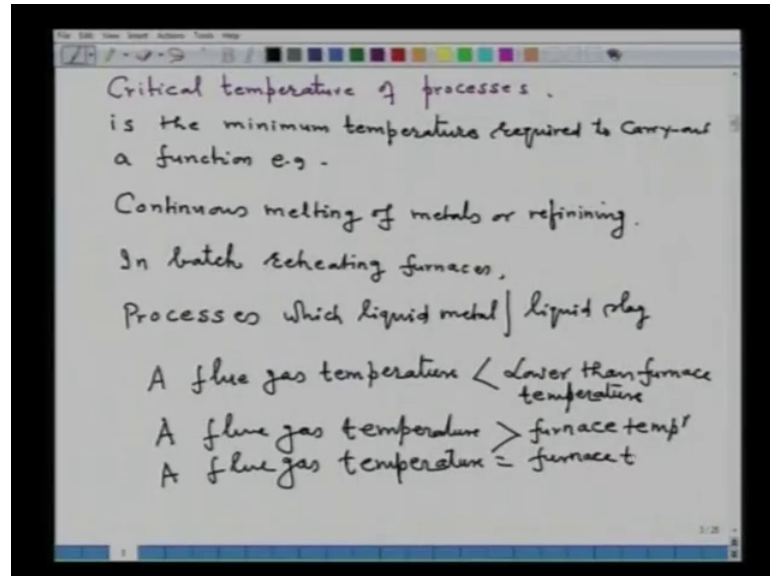 File Edit View Insert Actions Tools Help
Critical temperature of processes.
is the minimum temperature required to carry-out
a function e.g -
Continuous melting of metals or refinining.
In batch reheating furnaces,
Processes which liquid metal | liquid slag
A flue gas temperature < Lower than furnace
temperature
A flue gas temperature > furnace tempr
A flue gas temperature = furnace t